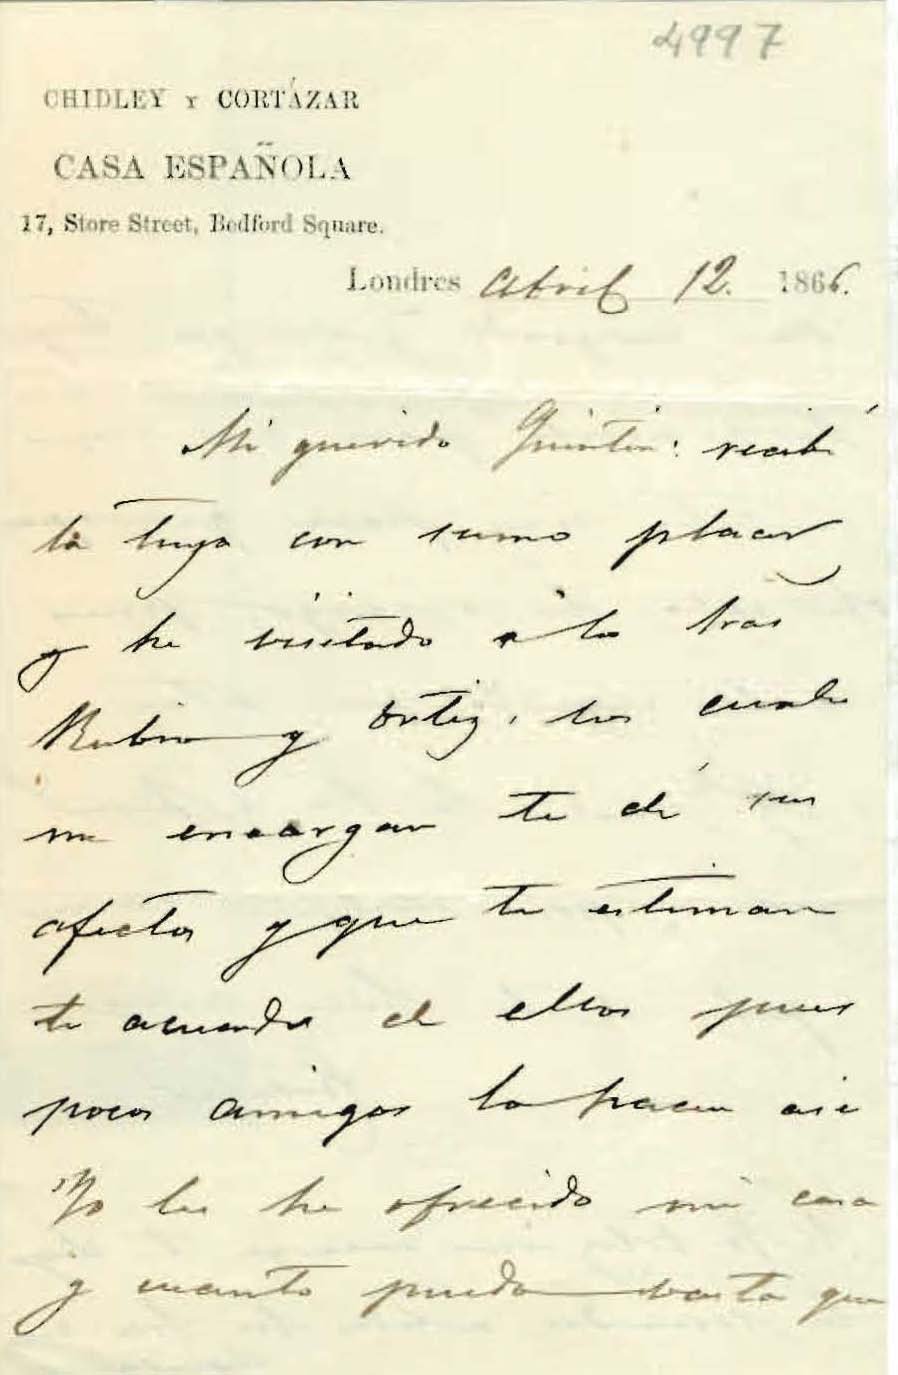 4997
CHIDLEY Y CORTÁZAR
CASA ESPAÑOLA
17, Store Street, Bedford Square.
Londres Abril 12. 1866.
Mi querido Quintin: recibí
la tuya con sumo placer
y he visitado a los tras
Rubio y Ortiz, los cuales
me encargan te dé sus
afectos y que te estiman
te acuerdes de ellos pues
pocos amigos lo hacen asi
Yo les he ofrecido mi casa
y cuanto puedo basta que